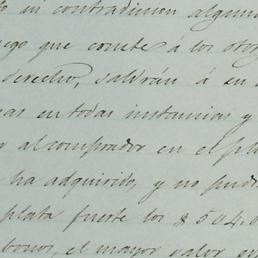 to ni contradiccion alguna
luego que conste á los otorg
derecho, saldrán á su
sas en todas instancias y
al comprador en el pl
ha adquirido, y no pudi
plata fuerte los $504.0
bonos, el mayor valor